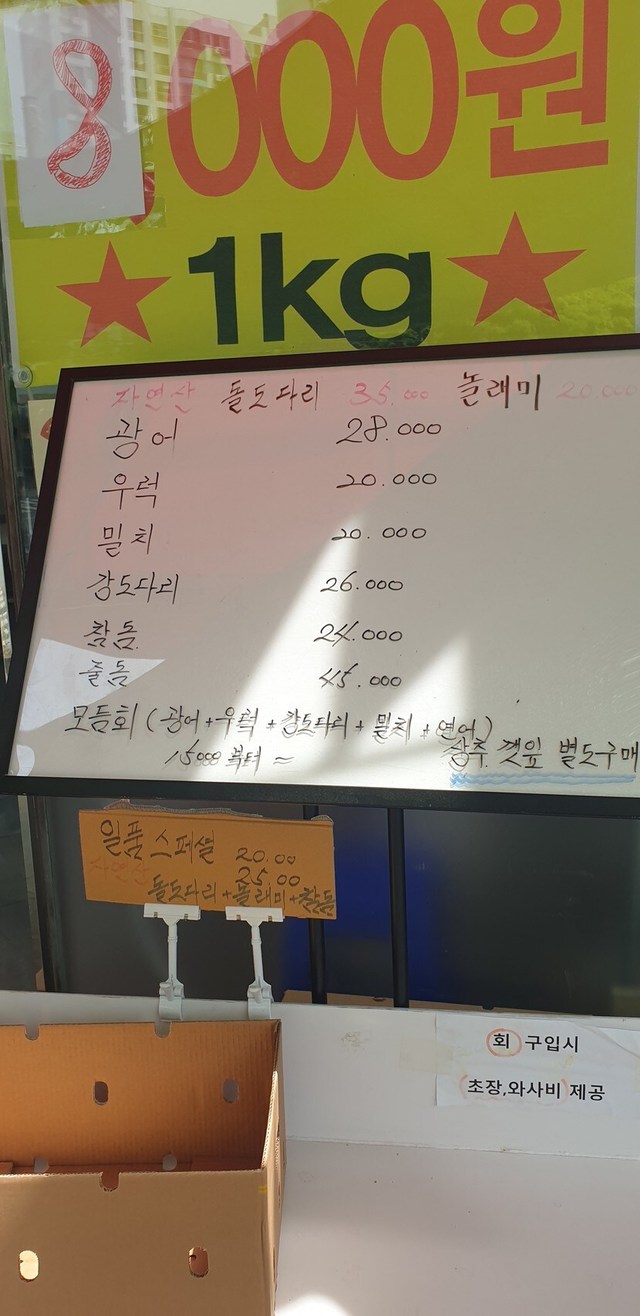 8,000원
★ 1kg ★
자연산 돌도다리 35.000 놀래미 20.000
광어 28.000
우럭 20.000
밀치 20.000
강도다리 26.000
참돔 24.000
줄돔 45.000
모듬회 (광어+우럭+강도다리+밀치+연어)
15000 부터 ~ 상추 깻잎 별도구매
일품 스페셜 20.00
자연산 25.00
돌도다리+놀래미+참돔
회 구입시
초장,와사비 제공